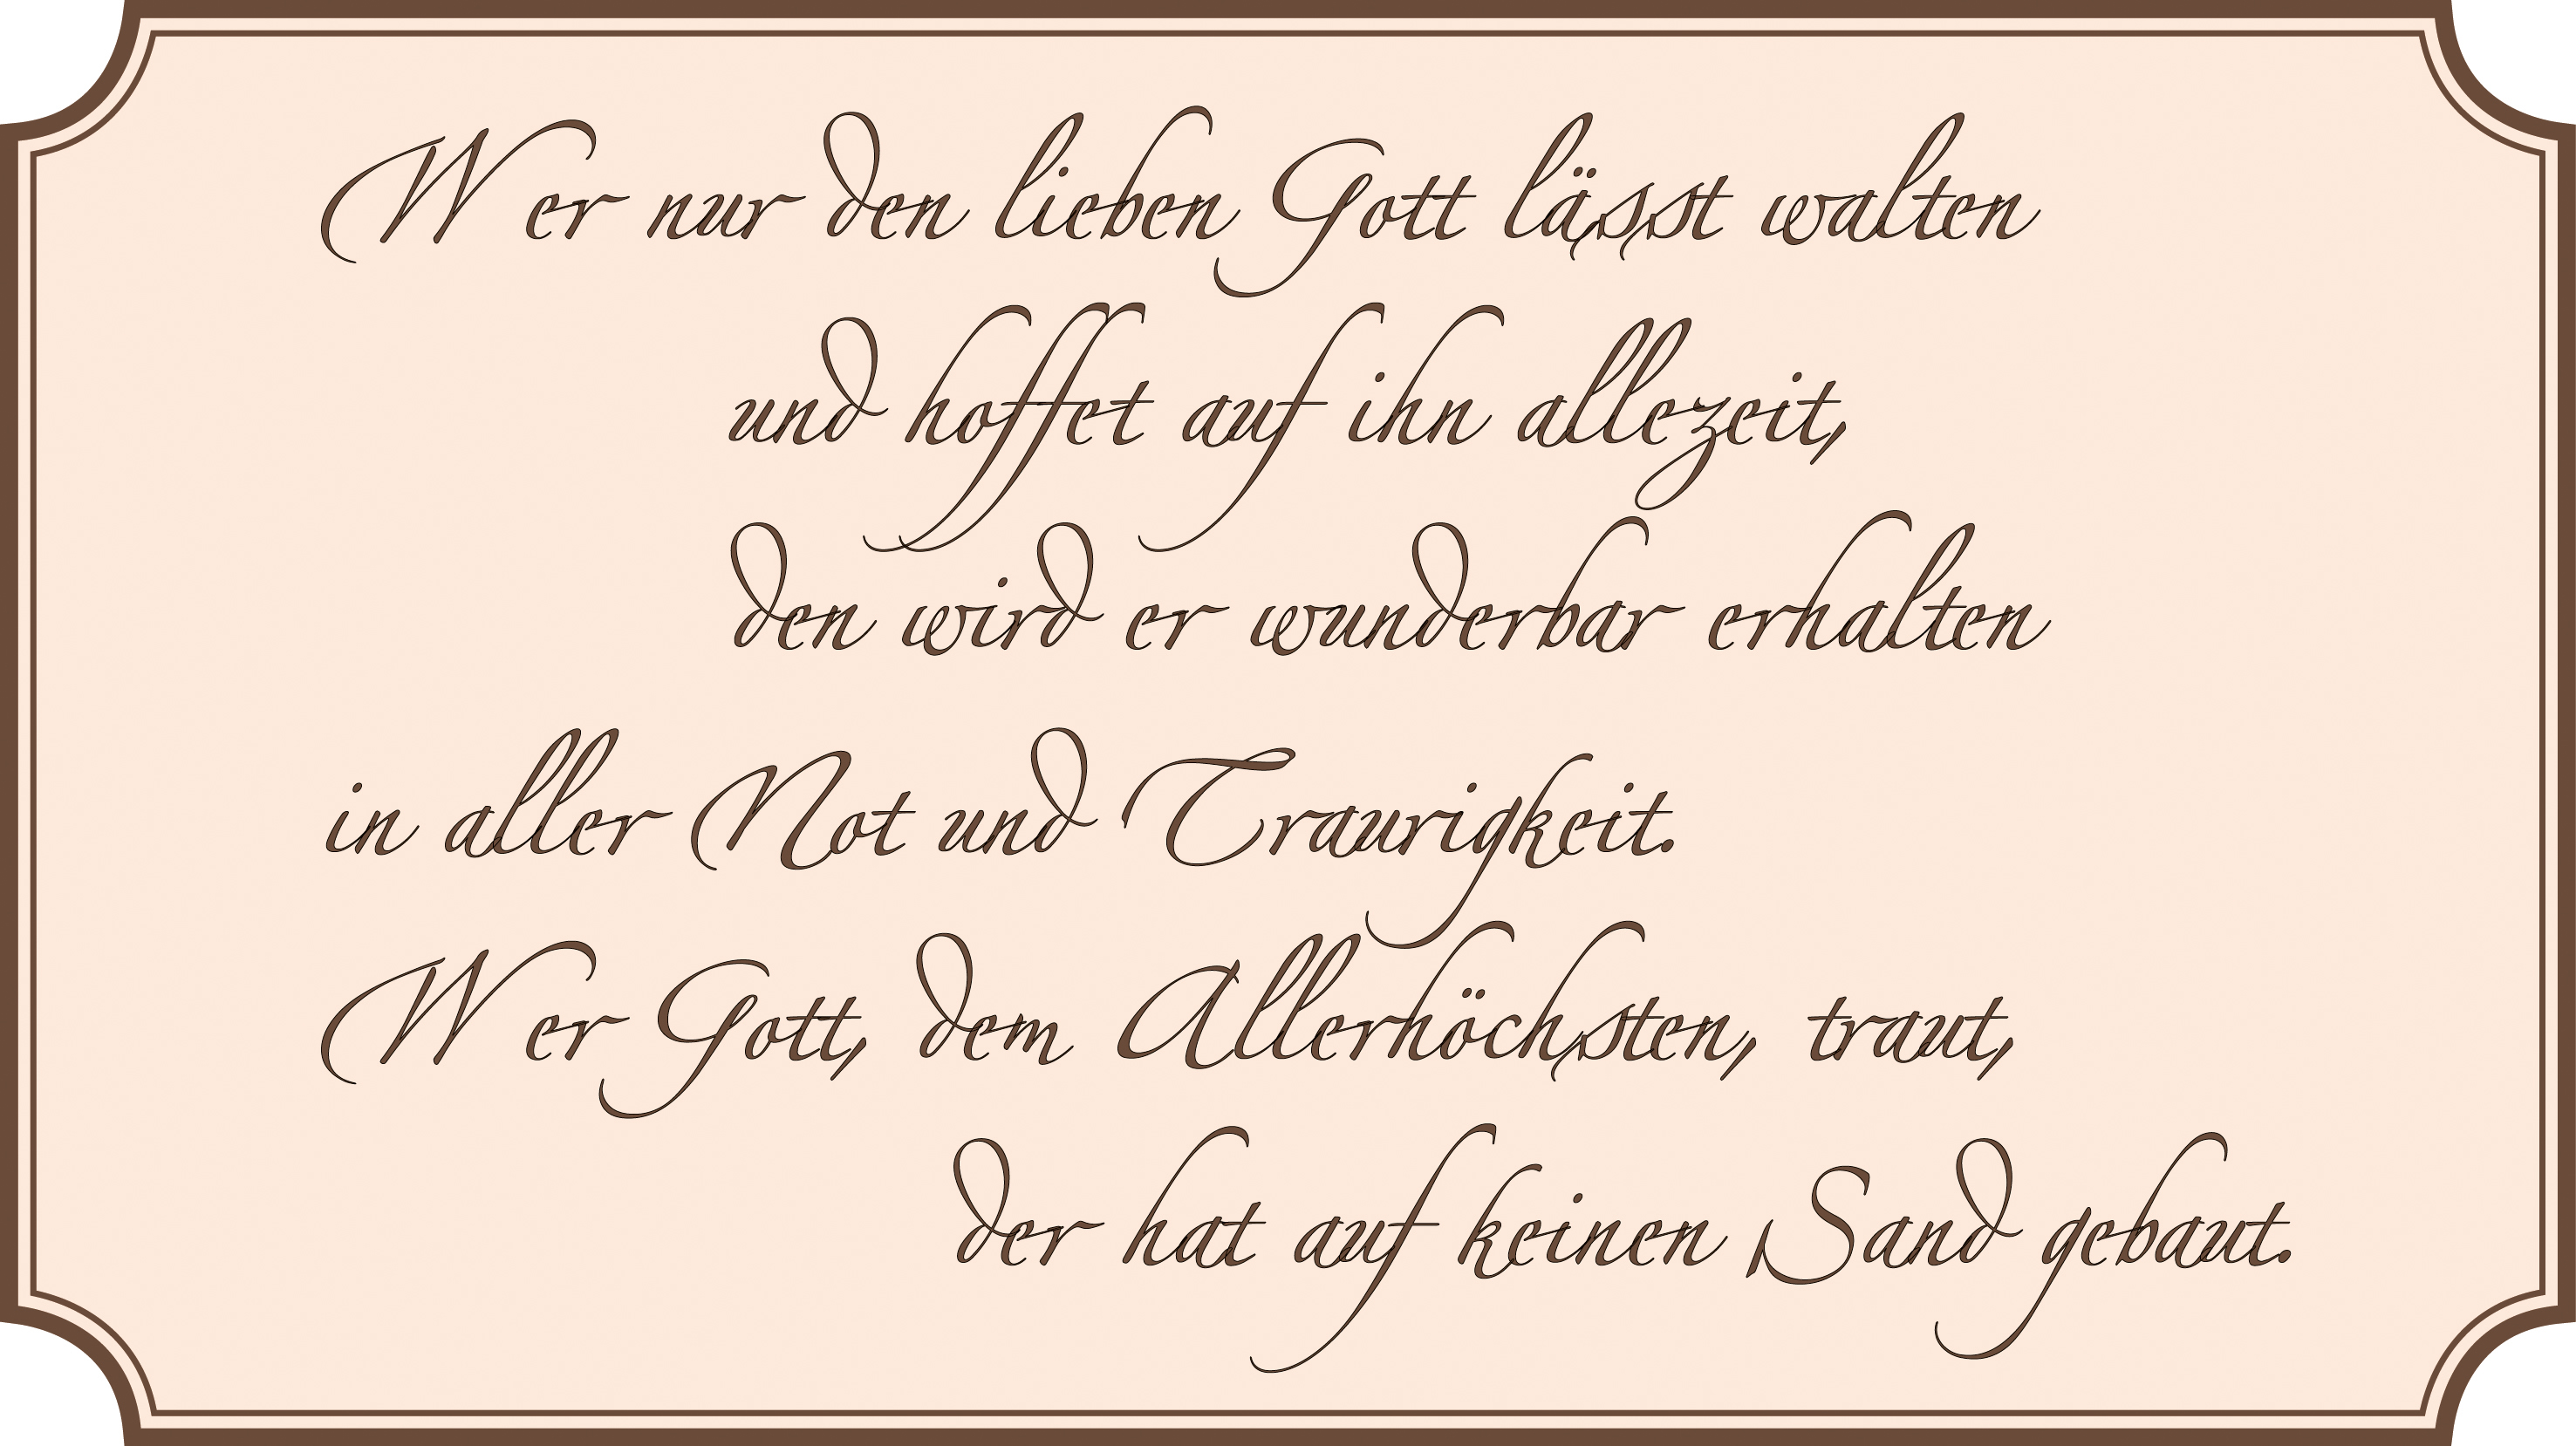 Wer nur den lieben Gott lässt walten
und hoffet auf ihn allezeit,
den wird er wunderbar erhalten
in aller Not und Traurigkeit.
Wer Gott, dem Allerhöchsten, traut,
der hat auf keinen Sand gebaut.